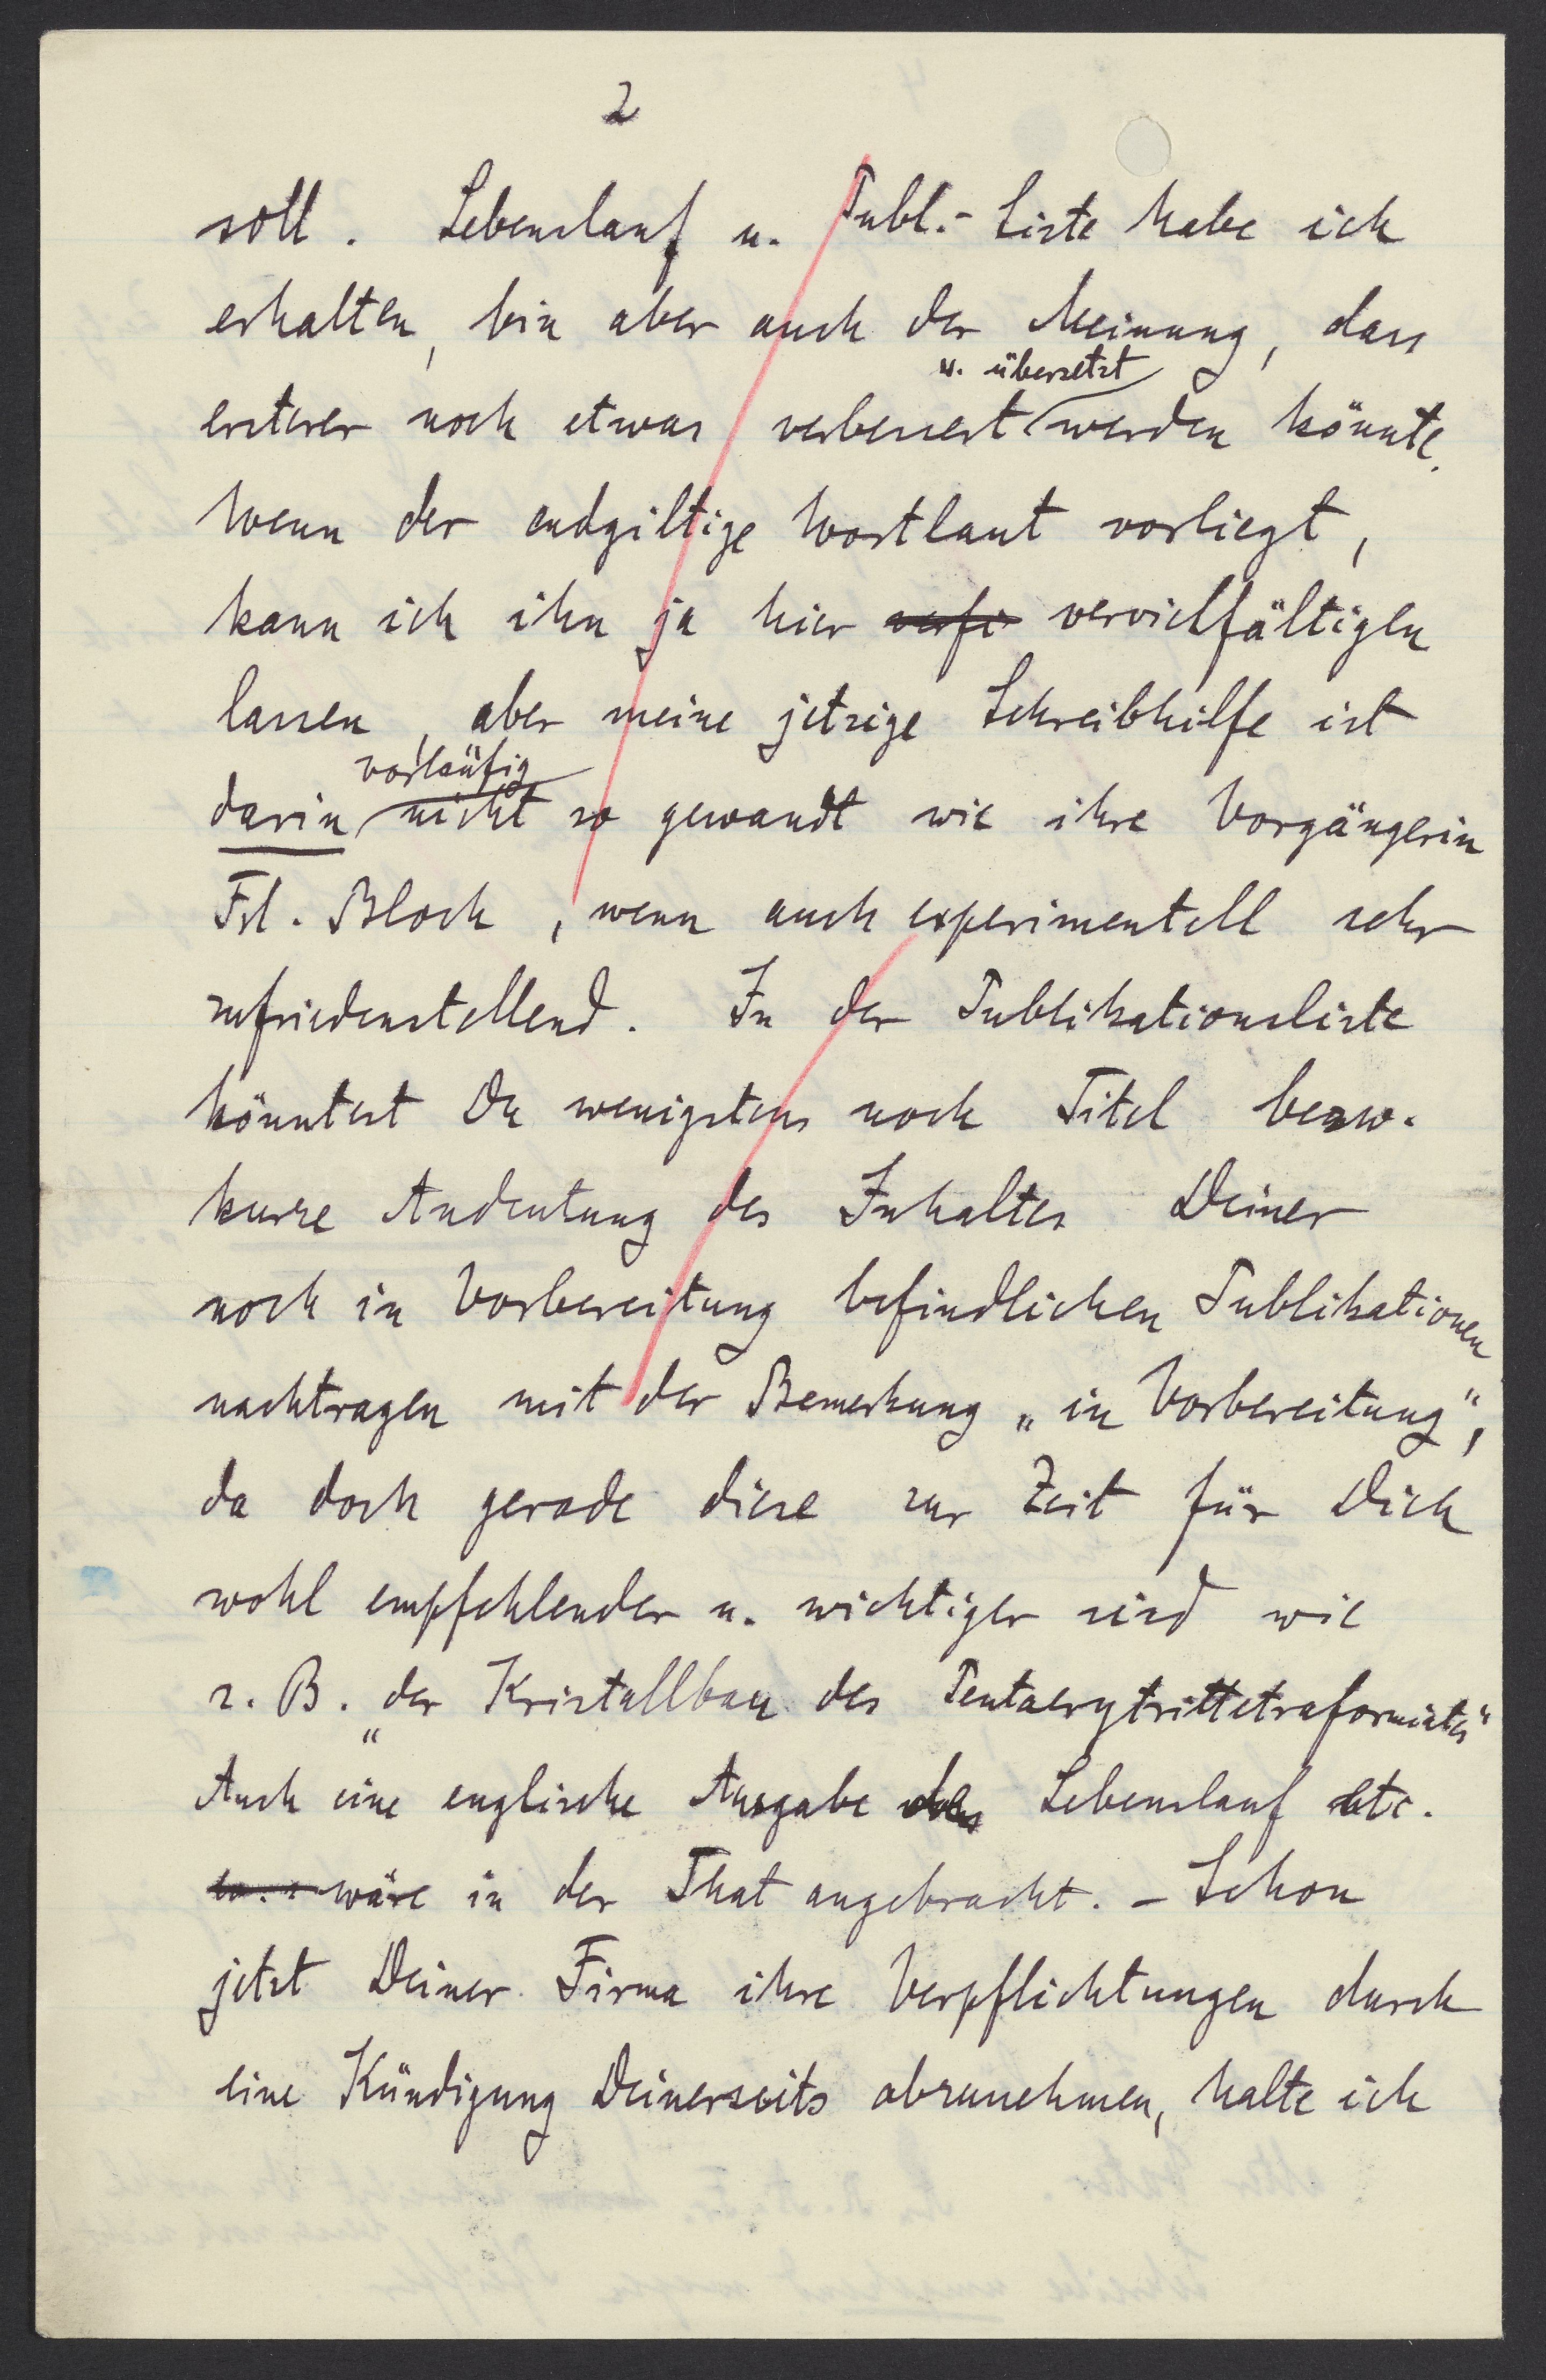 2
soll. Lebenslauf u. Publ.-Liste habe ich
erhalten, bin aber auch der Meinung, dass
u. übersetzt
ersterer noch etwas verbessert werden könnte.
Wenn der endgiltige Wortlaut vorliegt,
kann ich ihn ja hier verfi vervielfältigen
lassen, aber meine jetzige Schreibhilfe ist
vorläufig
darin nicht so gewandt wie ihre Vorgängerin
Frl. Bloch, wenn auch experimentell sehr
zufriedenstellend. In der Publikationsliste
könntest Du wenigstens noch Titel bezw.
kurze Andeutung des Inhaltes Deiner
noch in Vorbereitung befindlichen Publikationen
nachtragen mit der Bemerkung „in Vorbereitung",
da doch gerade diese zur Zeit für Dich
wohl empfehlender u. wichtiger sind wie
z. B. „der Kristallbau des Pentaerytrittetraformiates"
Auch eine englische Ausgabe des Lebenslauf etc.
wäre in der That angebracht. – Schon
jetzt Deiner Firma ihre Verpflichtungen durch
eine Kündigung Deinerseits abzunehmen, halte ich